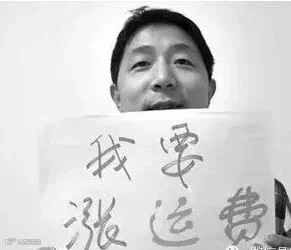 我要
涨运费